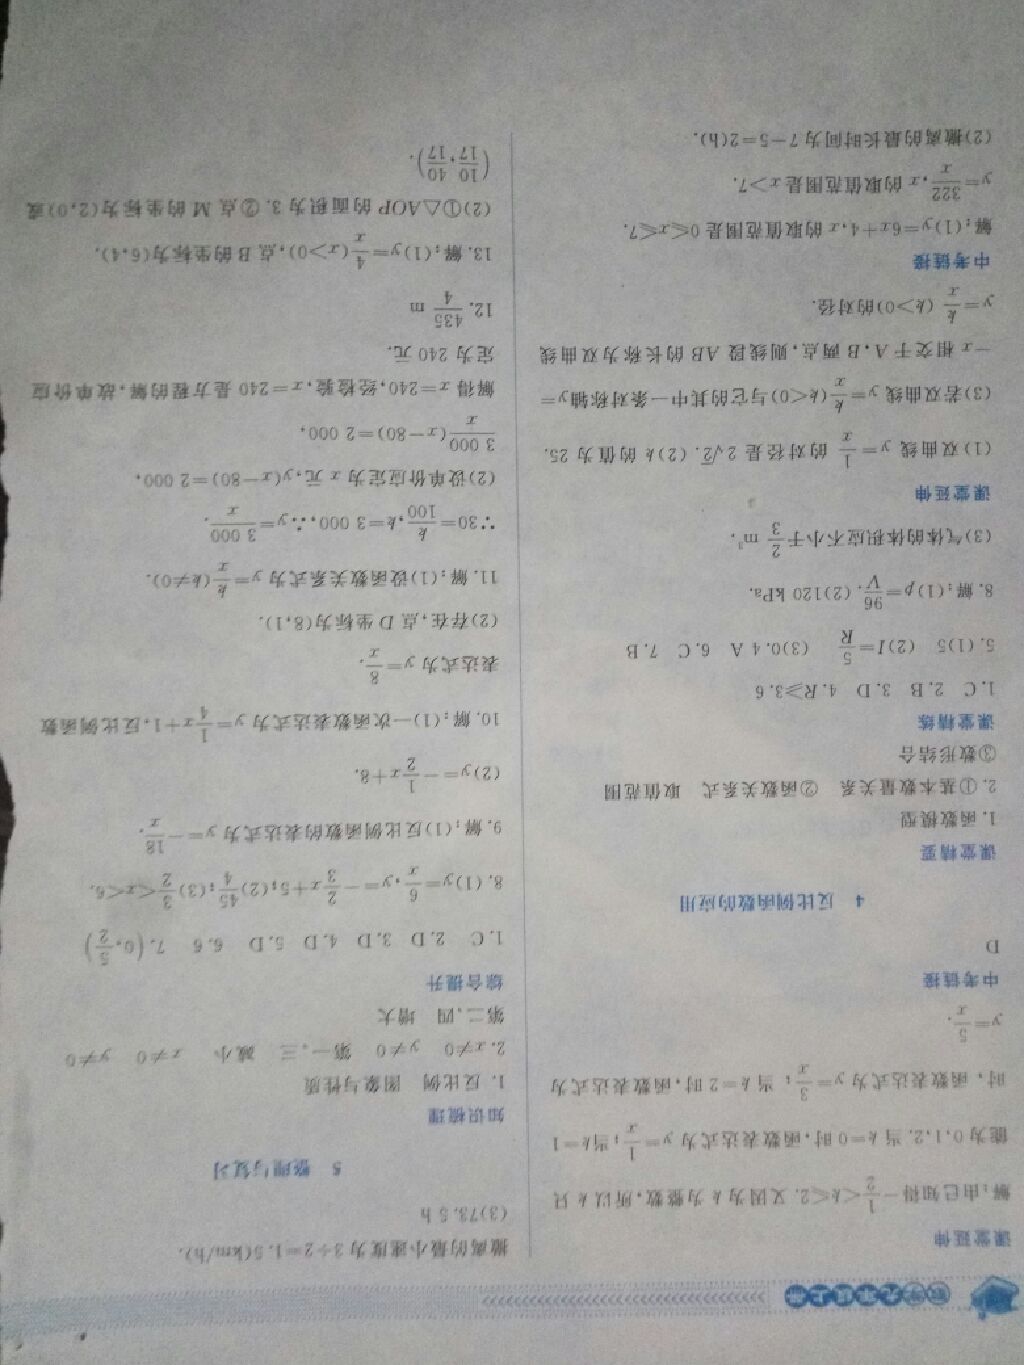 数学九年级上册
课堂延伸
解:由已知得-1/2<k≤2.又因为k为整数,所以k只
能为0,1,2.当k=0时,函数表达式为y=1/x;当k=1
时,函数表达式为y=3/x;当k=2时,函数表达式为
y=5/x.
中考链接
D
4 反比例函数的应用
课堂精要
1.函数模型
2.①基本数量关系 ②函数关系式 取值范围
③数形结合
课堂精练
1.C 2.B 3.D 4.R≥3.6
5.(1)5 (2)I=5/R (3)0.4 A 6.C 7.B
8.解:(1)p=96/V. (2)120 kPa.
(3)气体的体积应不小于2/3 m³.
课堂延伸
(1)双曲线y=1/x的对径是2√2. (2)k的值为25.
(3)若双曲线y=k/x(k<0)与它的其中一条对称轴y=
-x相交于A,B两点,则线段AB的长称为双曲线
y=k/x(k>0)的对径.
中考链接
解:(1)y=6x+4,x的取值范围是0≤x≤7.
y=322/x,x的取值范围是x>7.
(2)撤离的最长时间为7-5=2(h).
撤离的最小速度为3÷2=1.5(km/h).
(3)73.5 h
5 整理与复习
知识梳理
1.反比例 图象与性质
2.x≠0 y≠0 第一、三 减小 x≠0 y≠0
第二、四 增大
综合提升
1.C 2.D 3.D 4.D 5.D 6.6 7.(0,5/2)
8.(1)y=6/x,y=-2/3x+5;(2)45/4;(3)3/2<x<6.
9.解:(1)反比例函数的表达式为y=-18/x.
(2)y=-1/2x+8.
10.解:(1)一次函数表达式为y=1/4x+1,反比例函数
表达式为y=8/x.
(2)存在,点D坐标为(8,1).
11.解:(1)设函数关系式为y=k/x(k≠0).
∵30=k/100,k=3 000,∴y=3 000/x.
(2)设单价应定为x元,y(x-80)=2 000,
3 000/x(x-80)=2 000,
解得x=240,经检验,x=240是方程的解,故单价应
定为240元.
12. 435/4 m
13.解:(1)y=4/x(x>0),点B的坐标为(6,4).
(2)①△AOP的面积为3.②点M的坐标为(2,0)或
(10/17,40/17).